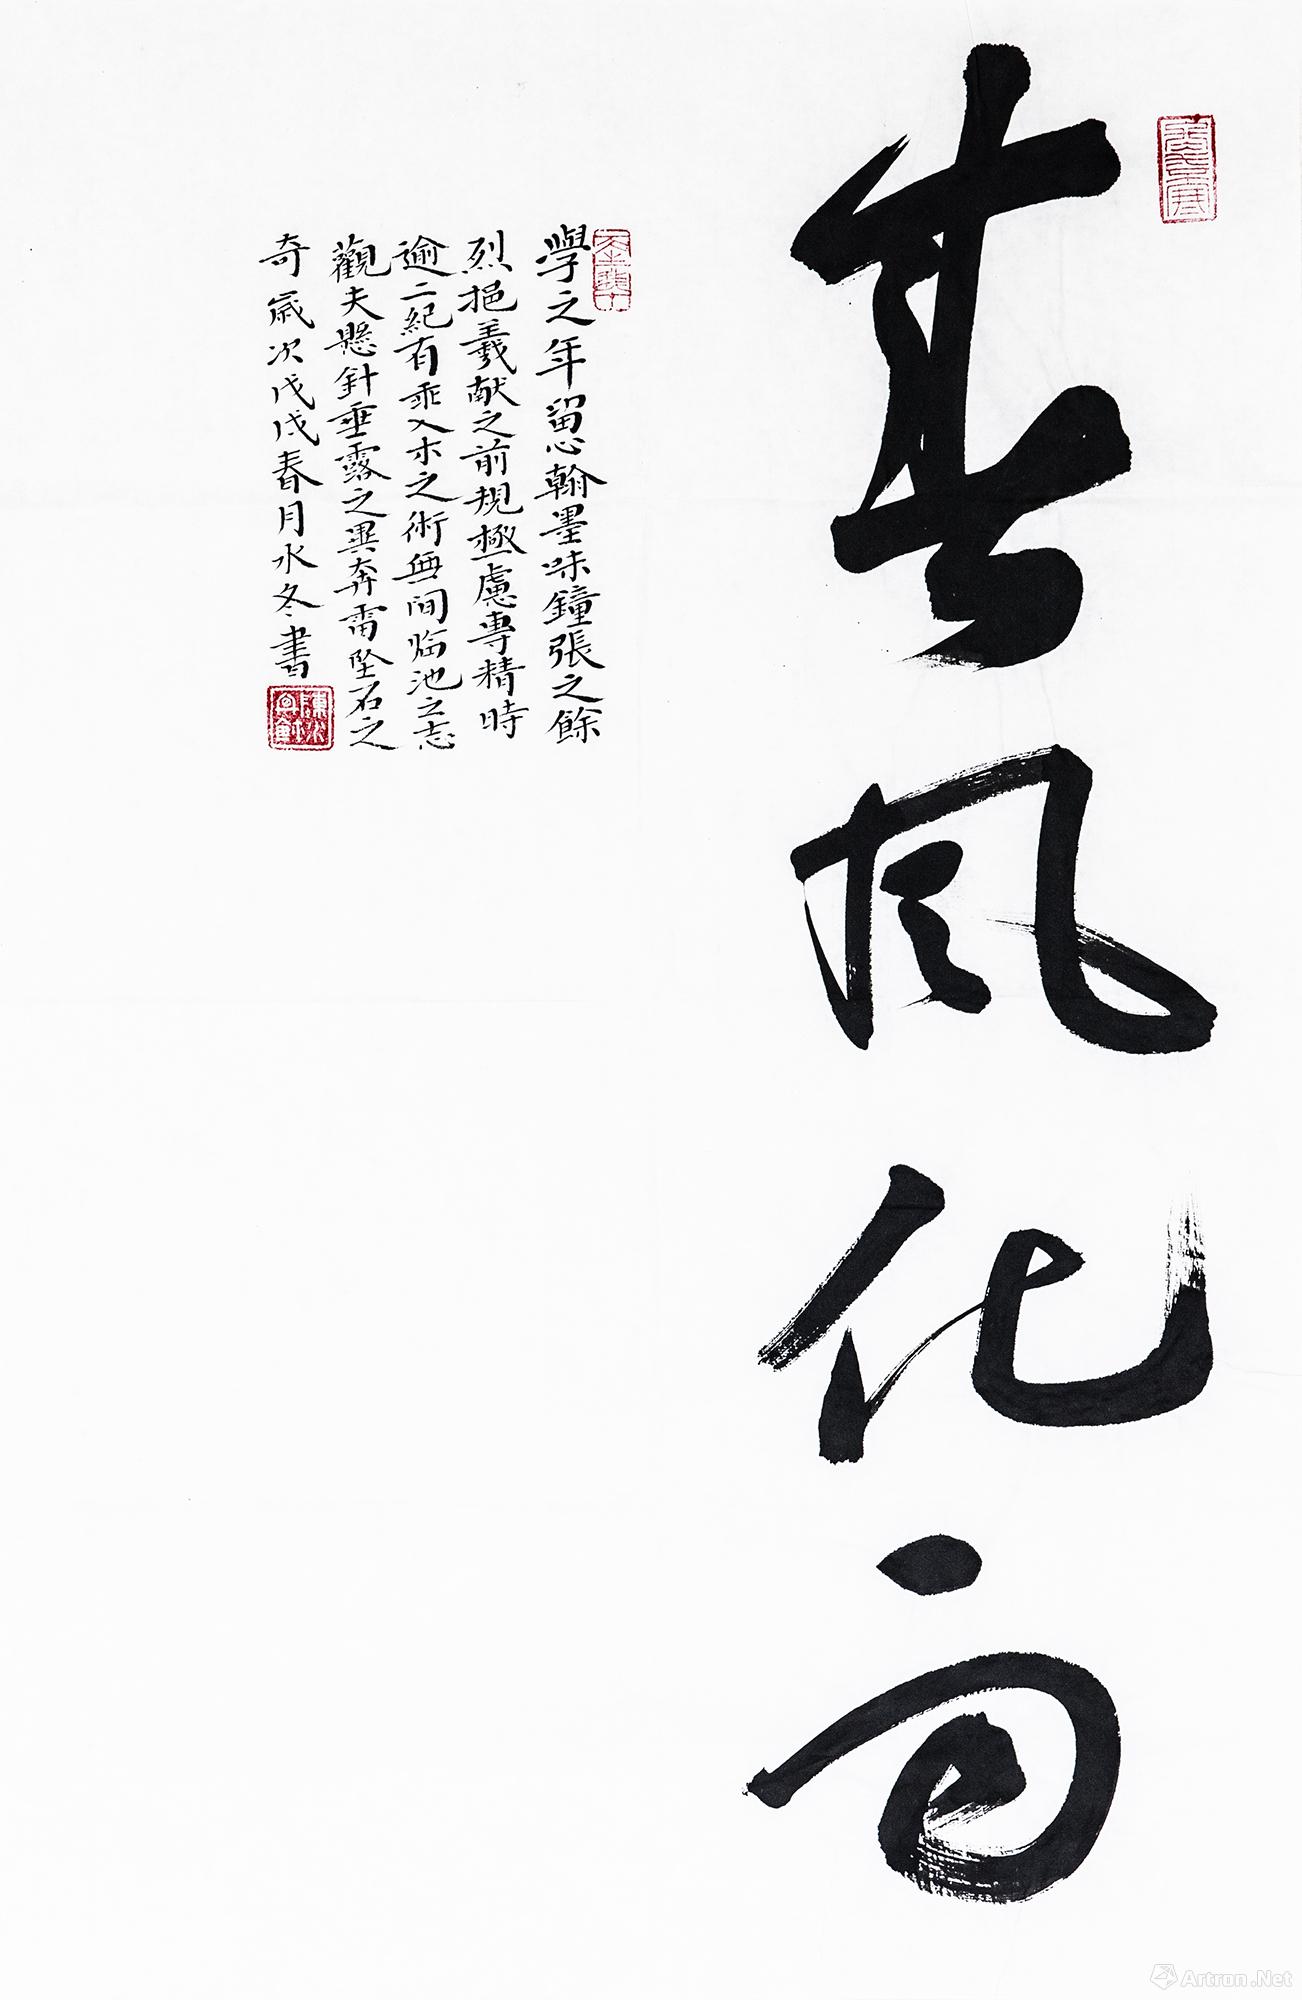 春风化雨
學之年留心翰墨味鐘張之餘
烈挹羲献之前規極慮專精時
逾二紀有乖入木之術無间临池之志
觀夫懸針垂露之異奔雷坠石之
奇歲次戊戌春月水冬書
Artron.Net